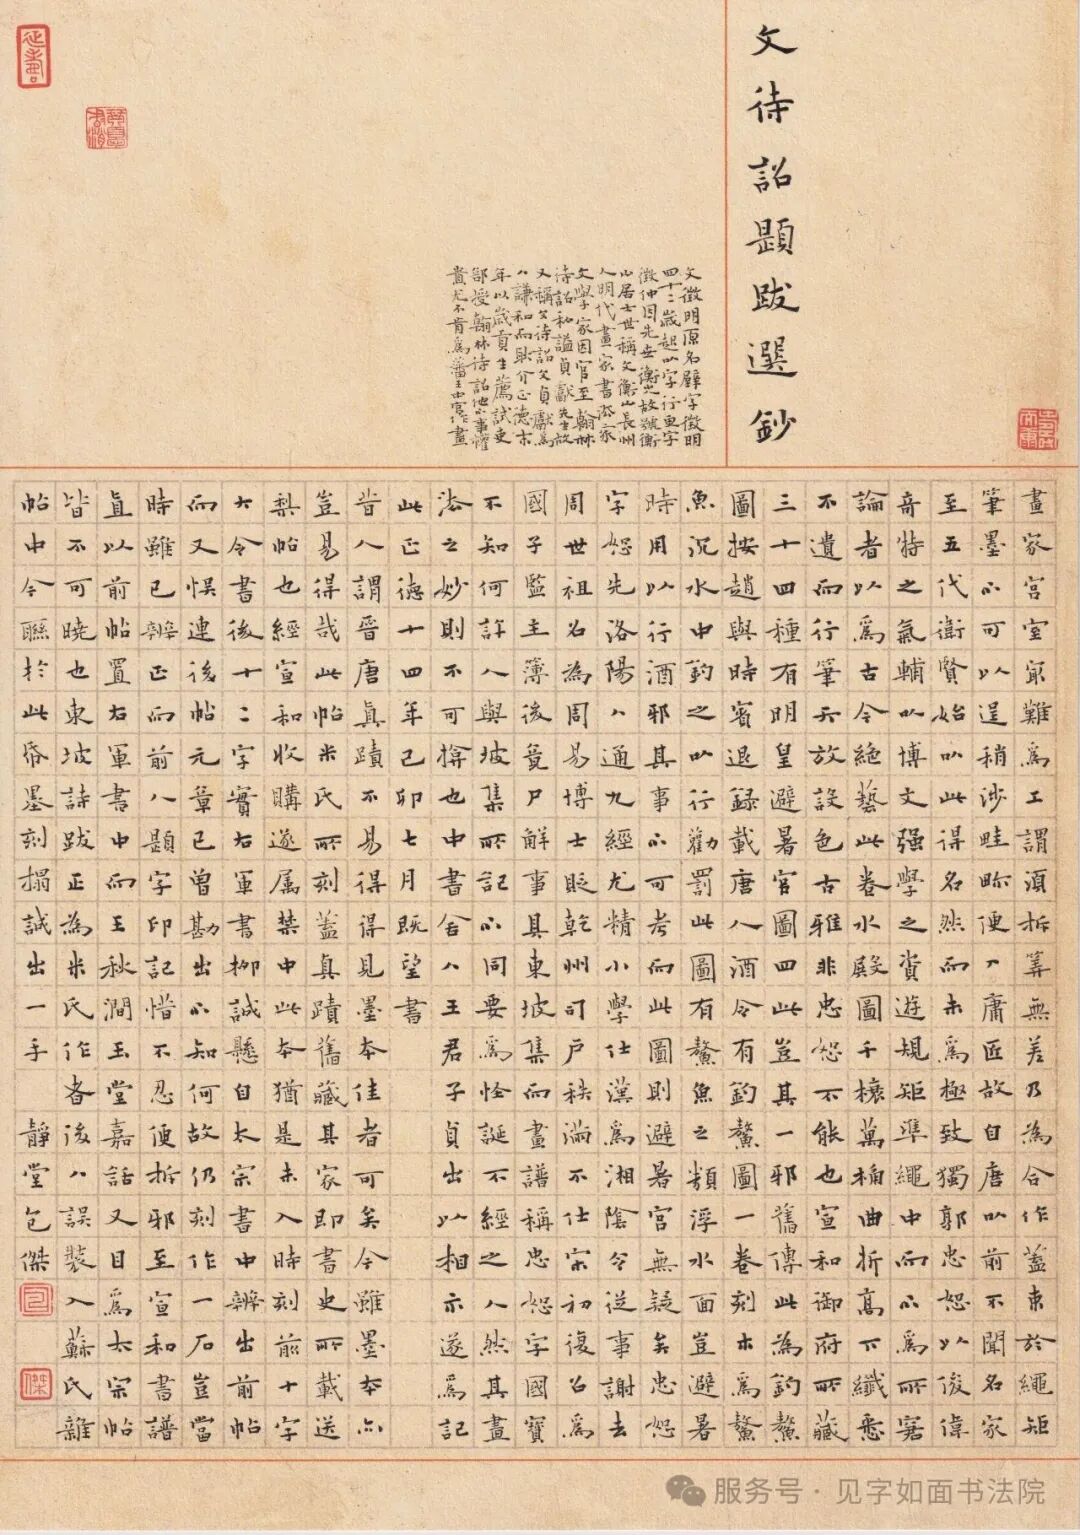 文待詔題跋選鈔
文徵明原名壁字徵明
四十二歲起以字行更字
徵仲因先世衡山故號衡
山居士世稱文衡山長州
人明代畫家書法家
文學家因官至翰林
待詔私謚貞獻先生故
又稱文待詔文貞獻爲
人謙和而耿介正德末
年以歲貢生薦試吏
部授翰林待詔他不事權
貴尤不肯爲藩王中官作畫
畫家宮室寂難爲工謂須折筭無差乃為合作蓋束於繩矩
筆墨不可以逞稍涉畦畛便入庸匠故自唐以前不聞名家
至五代衛賢始以此得名然而未爲極致獨郭忠恕以俊偉
奇特之氣輔以博文强學之資遊規矩準繩中而不爲所窘
論者以爲古今絶藝此卷水殿圖千榱萬桷曲折高下纖悉
不遺而行筆天放設色古雅非忠恕不能也宣和御府所藏
三十四種有明皇避暑宮圖四此豈其一邪舊傳此為釣鰲
圖按趙與時賓退録載唐人酒令有釣鰲圖一卷刻木爲鰲
魚沉水中釣之以行勸罰此圖有鰲魚之類浮水面豈避暑
時用以行酒邪其事不可考而此圖則避暑宮無疑矣忠恕
字恕先洛陽人通九經尤精小學仕漢爲湘陰令從事謝去
周世祖召為周易博士貶乾州司戶秩滿不仕宋初復召爲
國子監主簿後竟尸解事具東坡集而畫譜稱忠恕字國寶
不知何許人與坡集所記不同要爲怪誕不經之人然其畫
法之妙則不可揜也中書舍人王君子貞出以相示遂爲記
此正德十四年己卯七月既望書
昔人謂晉唐真蹟不易得得見墨本佳者可矣今雖墨本亦
豈易得哉此帖米氏所刻蓋真蹟舊藏其家即書史所載送
梨帖也經宣和收購遂属禁中此本猶是未入時刻前十字
大令書後十二字實右軍書柳誠懸自太宗書中辨出前帖
而又悞連後帖元章已曾勘出不知何故仍刻作一石豈當
時雖已辨正而前人題字印記惜不忍便拆邪至宣和書譜
真以前帖置右軍書中而王秋澗玉堂嘉話又目爲太宗帖
皆不可曉也東坡詩跋正為米氏作者後人誤裝入蘇氏雜
帖中今聯於此帋墨刻搨誠出一手 静堂包傑
包
傑
服务号·见字如面书法院